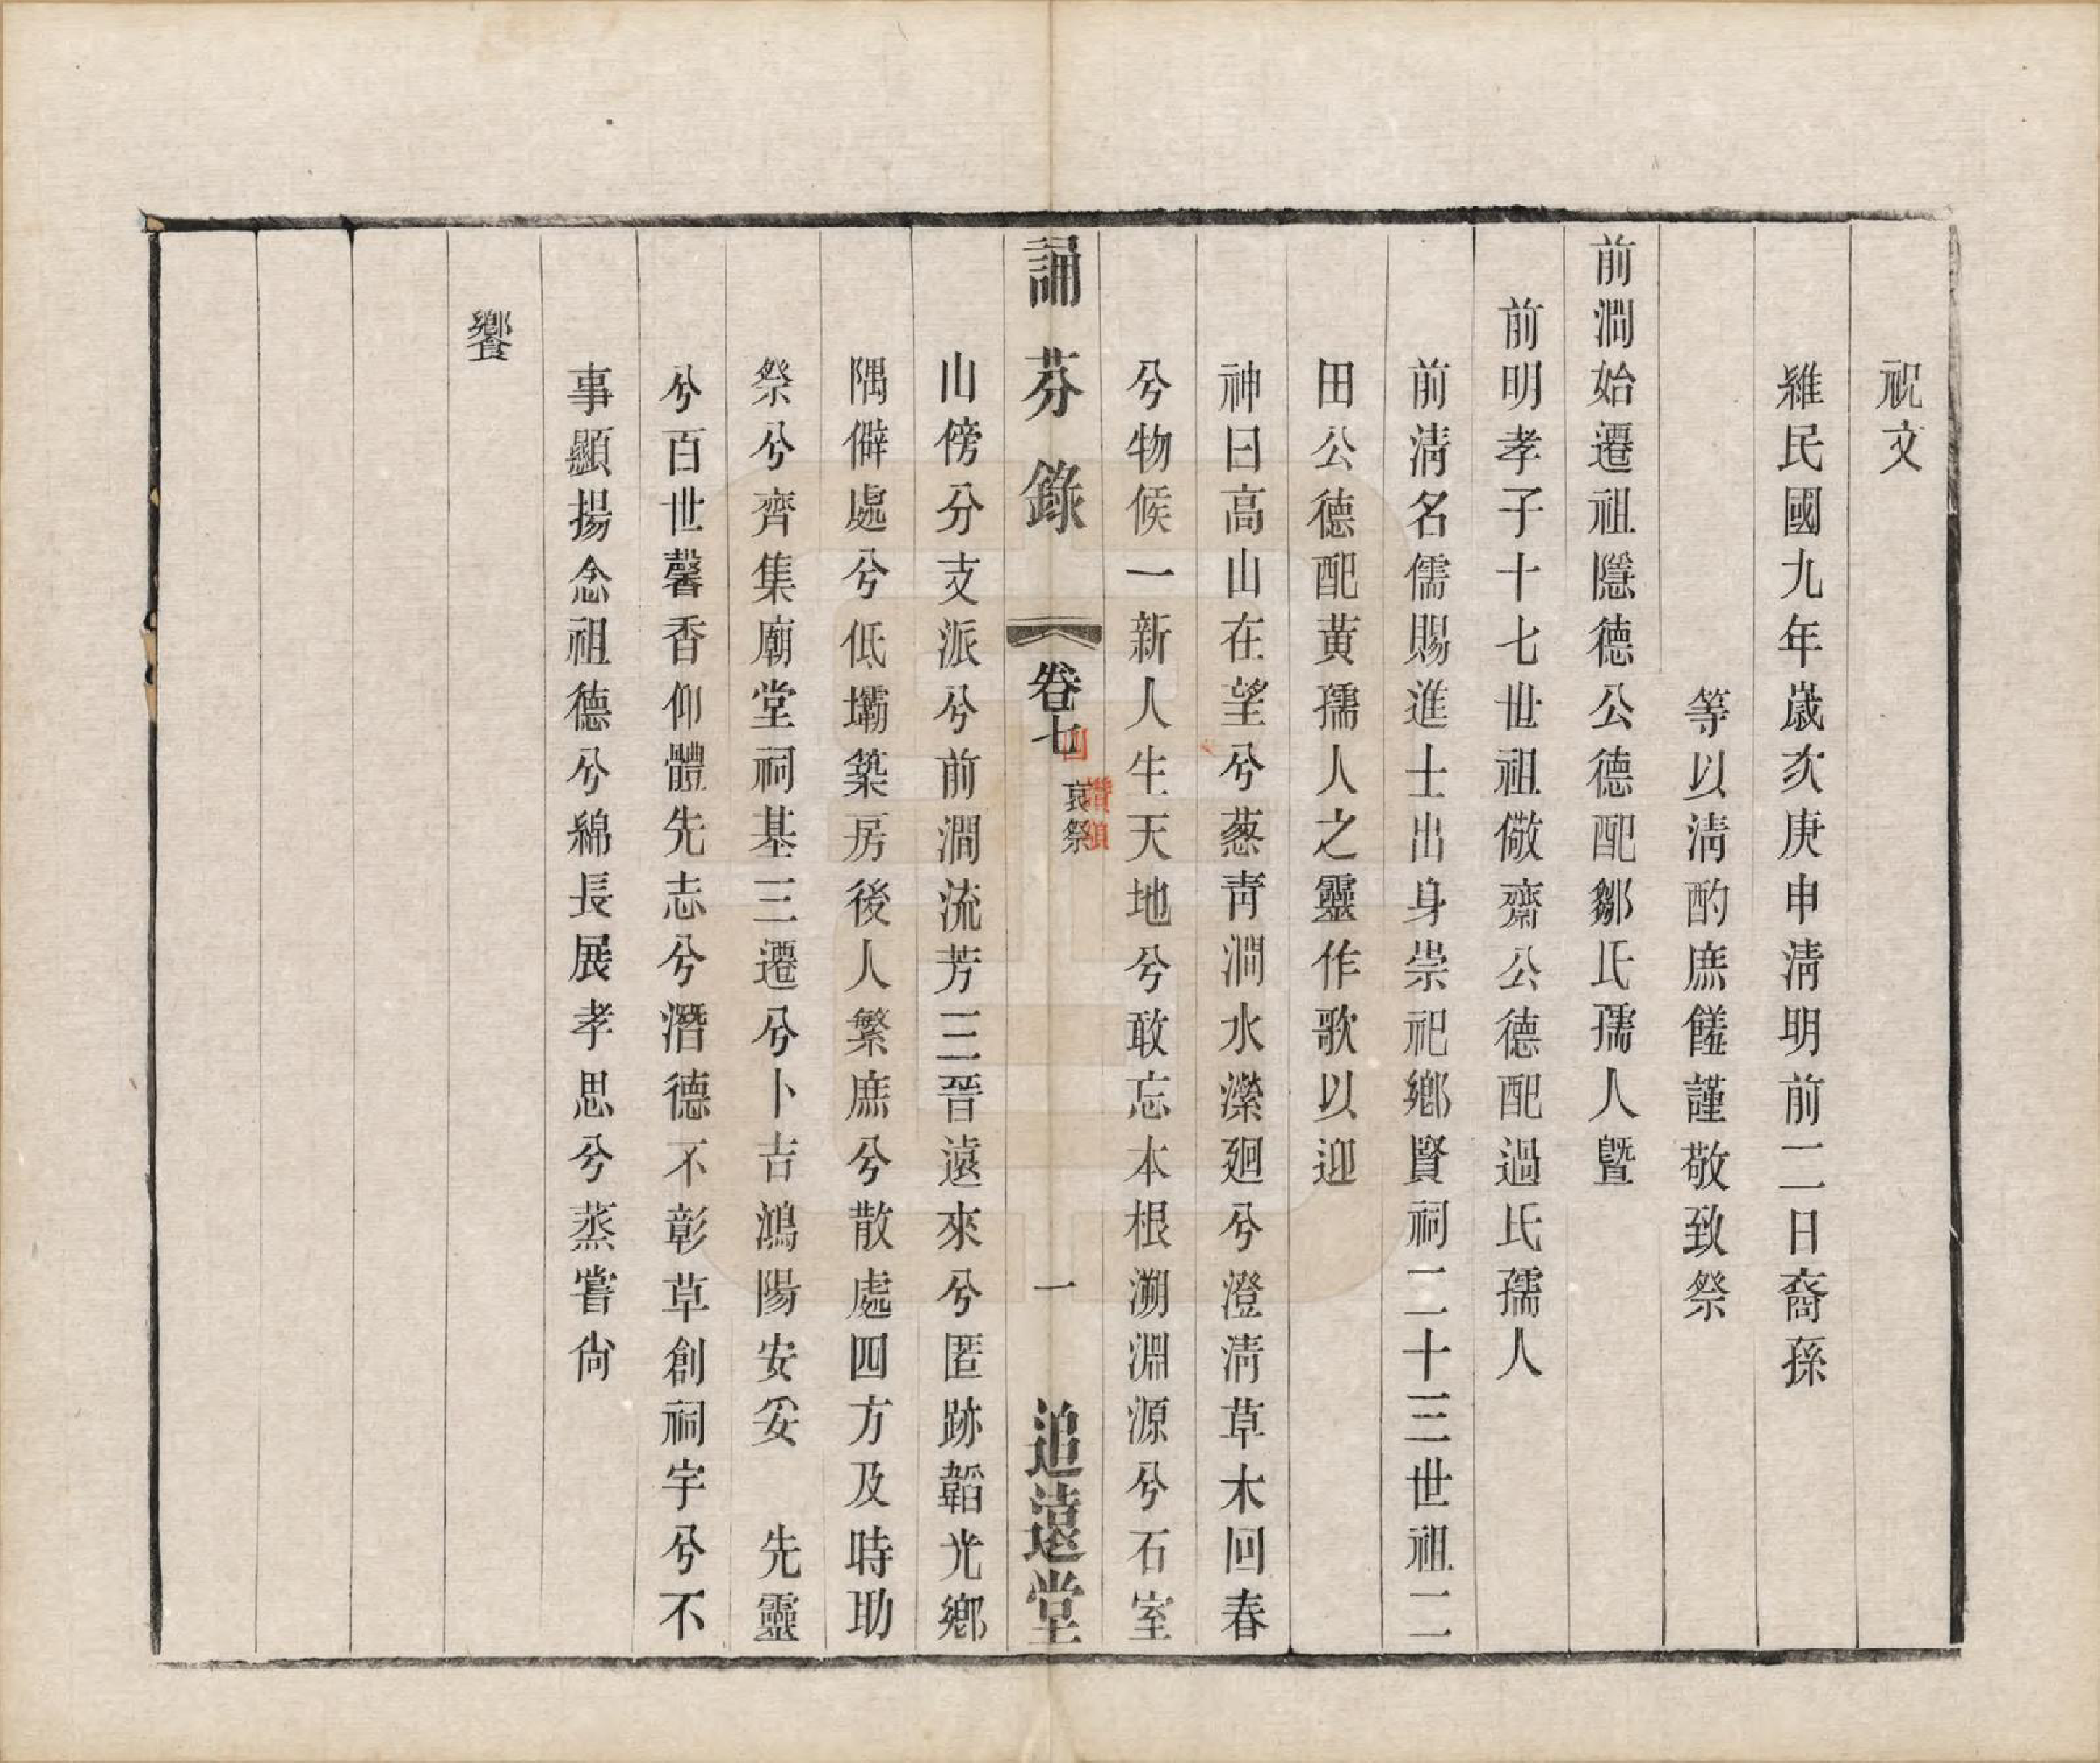 祝文
維民國九年歲次庚申淸明前二日裔孫
等以淸酌庶饈謹敬致祭
前澗始遷祖隱德公德配鄒氏孺人曁
前明孝子十七世祖儆齋公德配過氏孺人
前淸名儒賜進士出身崇祀鄕賢祠二十三世祖二
田公德配黃孺人之靈作歌以迎
神曰高山在望兮蔥靑澗水瀠廻兮澄淸草木回春
兮物候一新人生天地兮敢忘本根溯淵源兮石室
誦芬錄
卷七
四
哀祭
讚頌
一
追遠堂
山傍分支派兮前澗流芳三晉遠來兮匿跡韜光鄕
隅僻處兮低壩築房後人繁庶兮散處四方及時助
祭兮齊集廟堂祠基三遷兮卜吉鴻陽安妥　先靈
兮百世馨香仰體先志兮潛德不彰草創祠宇兮不
事顯揚念祖德兮綿長展孝思兮蒸嘗尙
饗